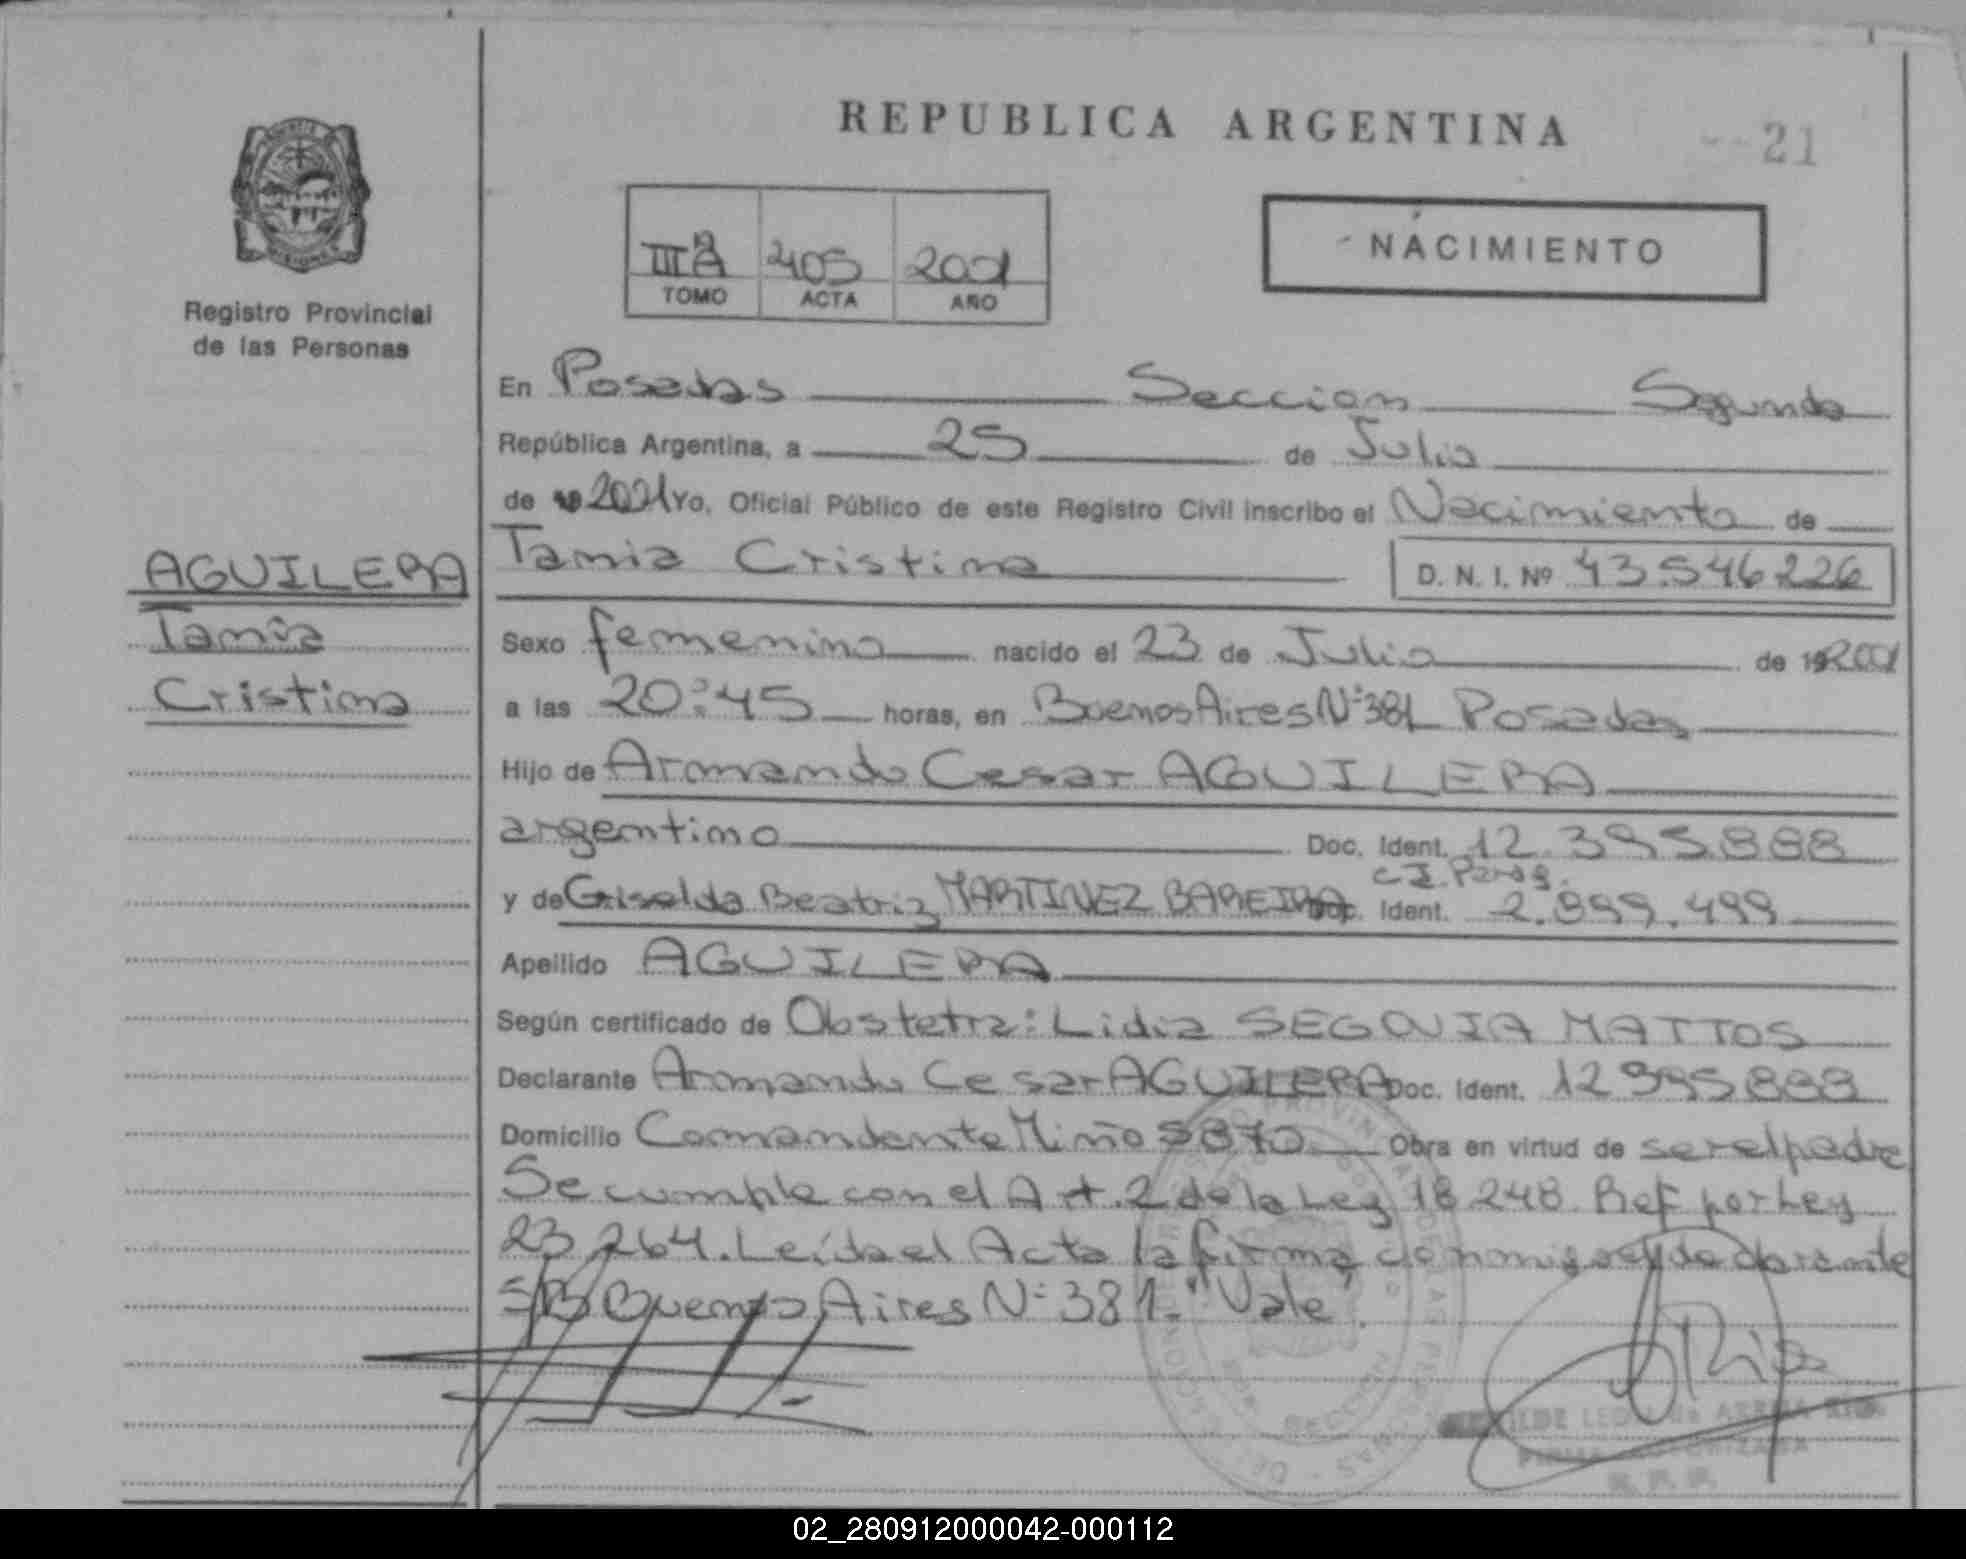 REPUBLICA ARGENTINA
21
IIIA 405 2001
TOMO ACTA AÑO
NACIMIENTO
Registro Provincial
de las Personas
En Posadas Seccion Segunda
República Argentina, a 25 de Julio
de 19 2001 Yo, Oficial Público de este Registro Civil inscribo el Nacimiento de
AGUILERA
Tamia
Cristina
Tamia Cristina D. N. I. Nº 43.546226
Sexo femenino nacido el 23 de Julio de 19 2001
a las 20:45 horas, en Buenos Aires Nº 381 Posadas
Hijo de Armando Cesar AGUILERA
argentino Doc. Ident. 12.395.888
C.I. Parag.
y de Griselda Beatriz MARTINEZ BAREIRA Doc. Ident. 2.899.499
Apellido AGUILERA
Según certificado de Obstetra: Lidia SEGOVIA MATTOS
Declarante Armando Cesar AGUILERA Doc. Ident. 12395888
Domicilio Comandante Miño 5870 Obra en virtud de ser el padre
Se cumple con el Art. 2 de la Ley 18248. Ref por Ley
23264. Leída el Acta la firma conmigo el declarante
S/B Buenos Aires Nº 381. "Vale".
Rios
02_280912000042-000112